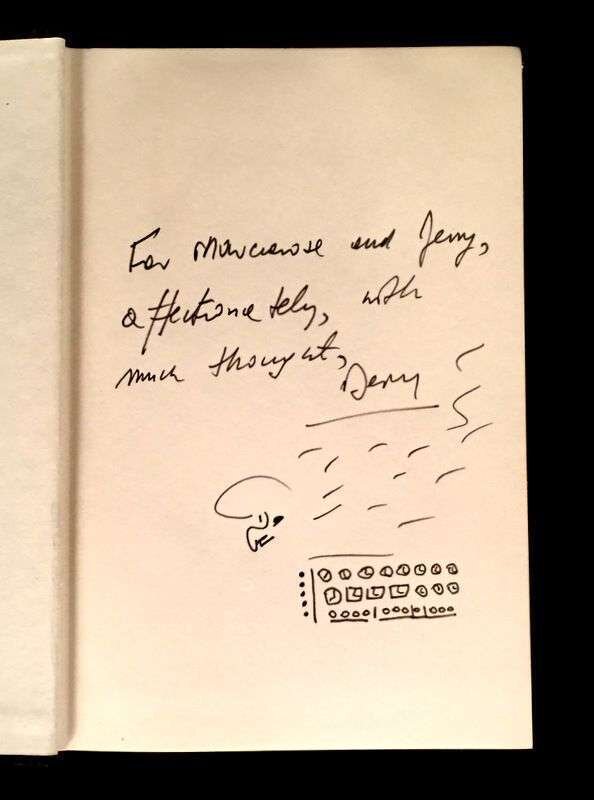 For Marcarose and Jerry,
affectionately, with
much thought,
Deny